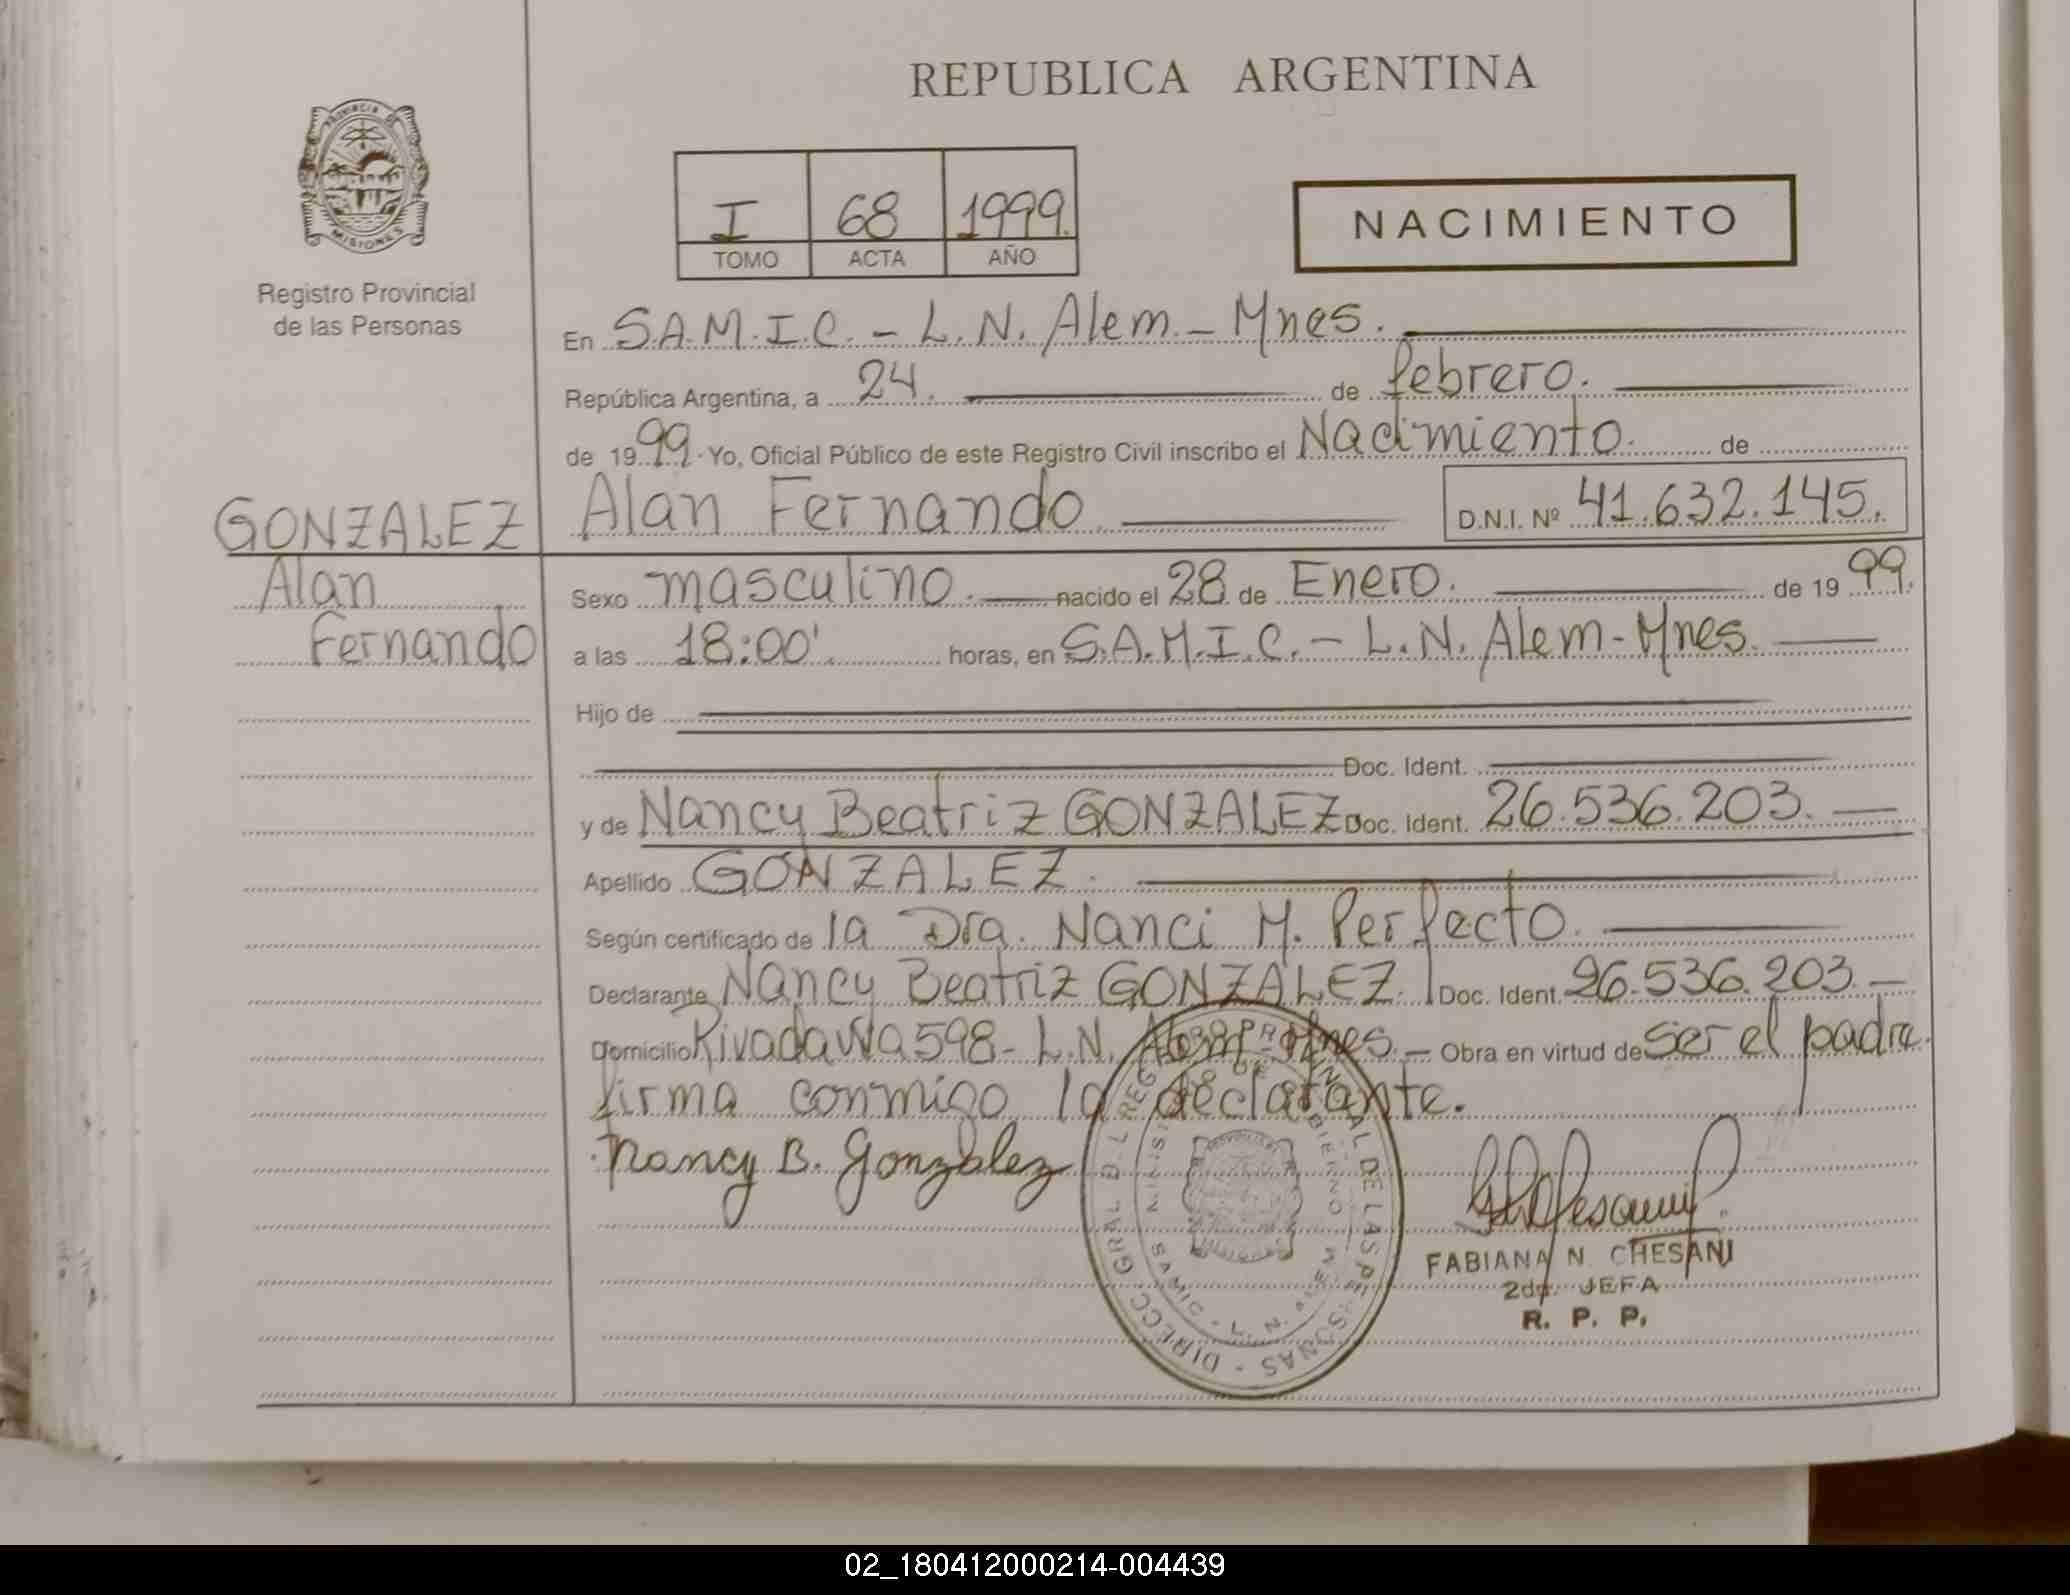 REPUBLICA ARGENTINA
PROVINCIA DE
MISIONES
Registro Provincial
de las Personas
I 68 1999.
TOMO ACTA AÑO
NACIMIENTO
En S.A.M.I.C. - L.N. Alem. - Mnes.
República Argentina, a 24. de febrero.
de 1999. Yo, Oficial Público de este Registro Civil inscribo el Nacimiento. de
GONZALEZ Alan Fernando D.N.I. Nº 41.632.145.
Alan Sexo masculino. nacido el 28 de Enero. de 19 99.
Fernando a las 18:00' horas, en S.A.M.I.C. - L.N. Alem - Mnes.
Hijo de
Doc. Ident.
y de Nancy Beatriz GONZALEZ Doc. Ident. 26.536.203.
Apellido GONZALEZ.
Según certificado de la Dra. Nanci M. Perfecto.
Declarante Nancy Beatriz GONZALEZ. Doc. Ident. 26.536.203.
Domicilio Rivadavia 598 - L.N. Alem - Mnes. - Obra en virtud de ser el padre.
firma conmigo la declarante.
Nancy B. Gonzalez
DIRECC GRAL D L REG PROVINCIAL DE LAS PERSONAS
SAMIC - L. N. ALEM
FABIANA N. CHESANI
2da. JEFA
R. P. P.
02_180412000214-004439